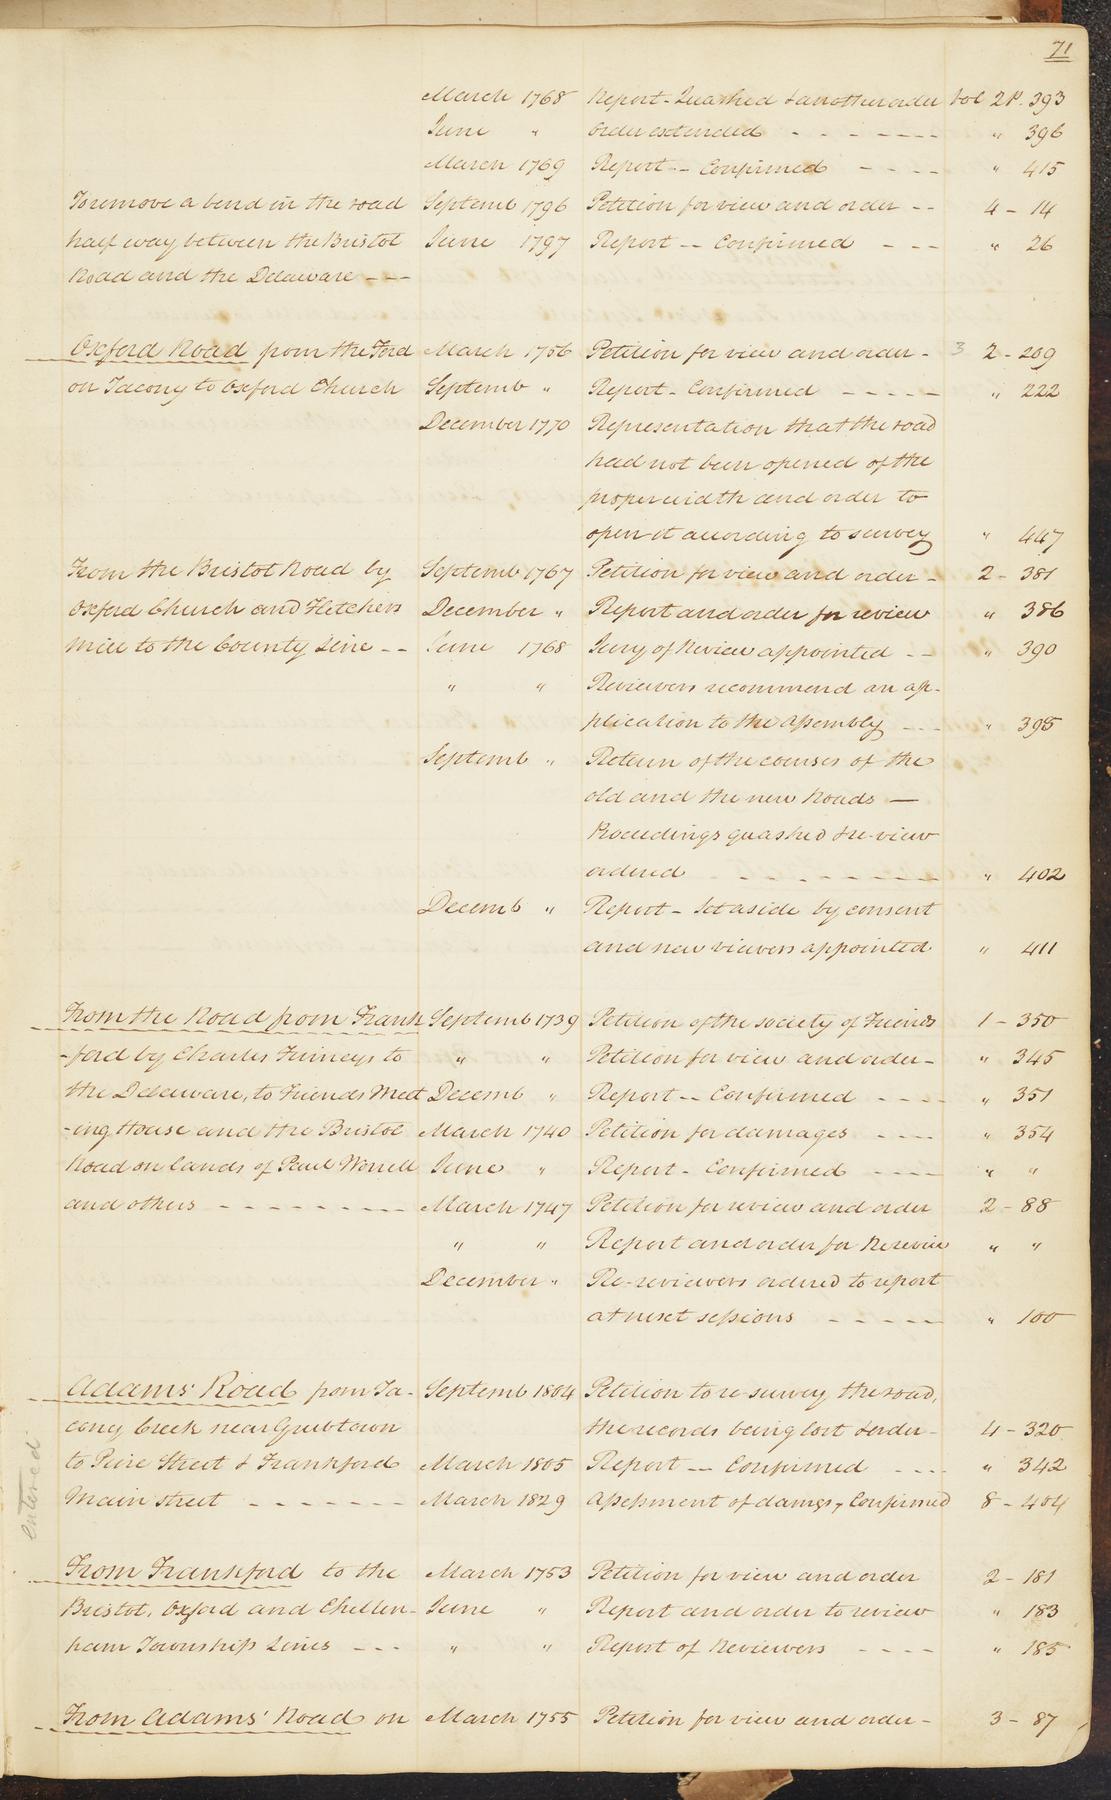 71
March 1768 Report - Quashed & another order Vol 2 P. 393
June " Order extended - - - - - - - " 396
March 1769 Report -- Confirmed - - - - " 415
To remove a bend in the road Septemb 1796 Petition for view and order -- 4 - 14
half way between the Bristol June 1797 Report -- Confirmed - - - " 26
Road and the Delaware ---
Oxford Road from the Ford March 1756 Petition for view and order - 3 2 - 209
on Tacony to Oxford Church Septemb " Report - Confirmed - - - - - " 222
December 1770 Representation that the road
had not been opened of the
proper width and order to
open it according to survey " 447
From the Bristol Road by Septemb 1767 Petition for view and order - 2 - 381
Oxford Church and Fletchers December " Report and order for review " 386
Mill to the County Line -- June 1768 Jury of Review appointed -- " 390
" " Reviewers recommend an ap-
plication to the Assembly --- " 395
Septemb " Return of the courses of the
old and the new Roads —
Proceedings quashed & re-view
ordered - - - - - - - - " 402
Decemb " Report - Set aside by consent
and new viewers appointed " 411
From the Road from Frank Septemb 1739 Petition of the society of Friends 1 - 350
-ford by Charles Finneys to " " Petition for view and order - " 345
the Delaware, to Friends Meet Decemb " Report -- Confirmed - - - - " 351
-ing House and the Bristol March 1740 Petition for damages - - - - " 354
Road on lands of Paul Worrell June " Report - Confirmed - - - - " "
and others - - - - - - - - - March 1747 Petition for review and order 2 - 88
" " Report and order for Rereview " "
December " Re-reviewers ordered to report
at next sessions - - - - - " 100
Adams' Road from Ta- Septemb 1804 Petition to re-survey the road,
cony Creek near Grubtown the records being lost & order - 4 - 320
to Pine Street & Frankford March 1805 Report -- Confirmed - - - - " 342
Main street - - - - - - - March 1829 Assessment of damgs, Confirmed 8 - 404
entered
From Frankford to the March 1753 Petition for view and order 2 - 181
Bristol, Oxford and Chelten- June " Report and order to review " 183
ham Township Lines --- " " Report of Reviewers - - - - " 185
From Adams' Road on March 1755 Petition for view and order - 3 - 87